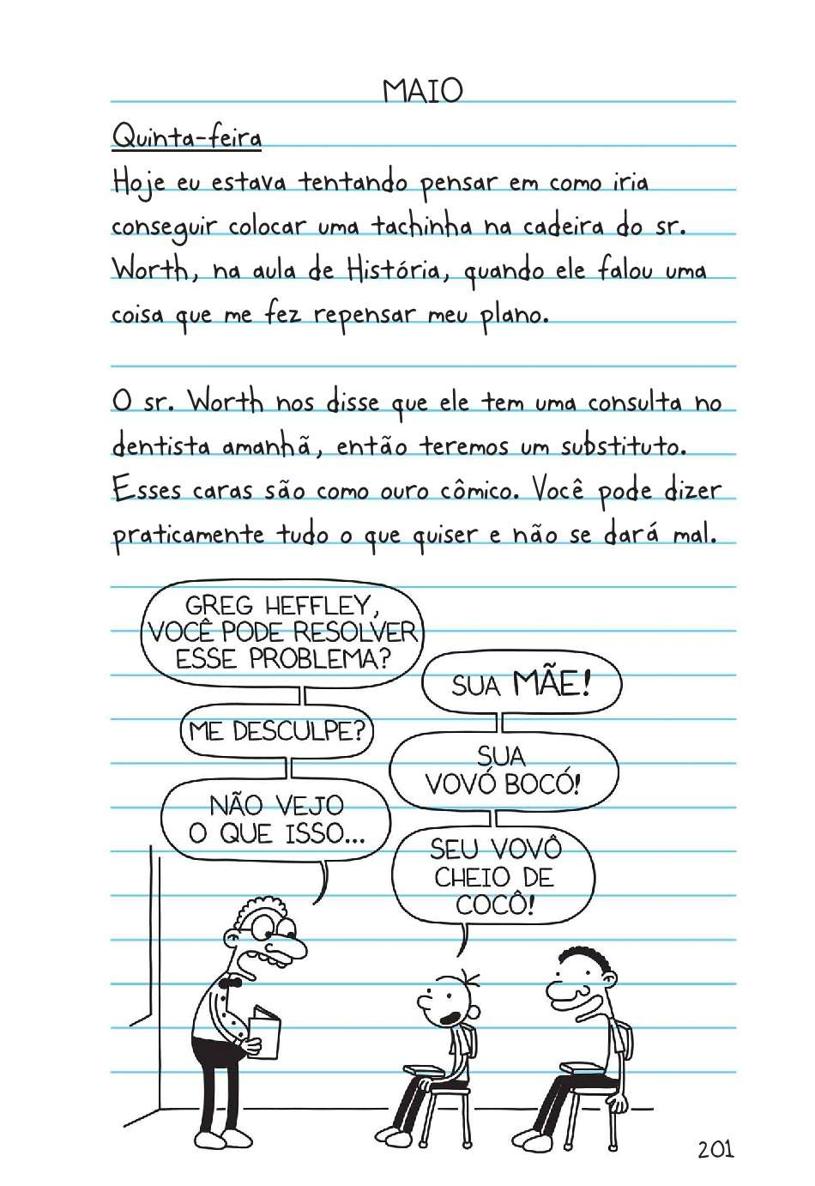 MAIO
Quinta-feira
Hoje eu estava tentando pensar em como iria
conseguir colocar uma tachinha na cadeira do sr.
Worth, na aula de História, quando ele falou uma
coisa que me fez repensar meu plano.
O sr. Worth nos disse que ele tem uma consulta no
dentista amanhã, então teremos um substituto.
Esses caras são como ouro cômico. Você pode dizer
praticamente tudo o que quiser e não se dará mal.
GREG HEFFLEY,
VOCÊ PODE RESOLVER
ESSE PROBLEMA?
SUA MÃE!
ME DESCULPE?
SUA
VOVÓ BOCÓ!
NÃO VEJO
O QUE ISSO...
SEU VOVÔ
CHEIO DE
COCÔ!
201